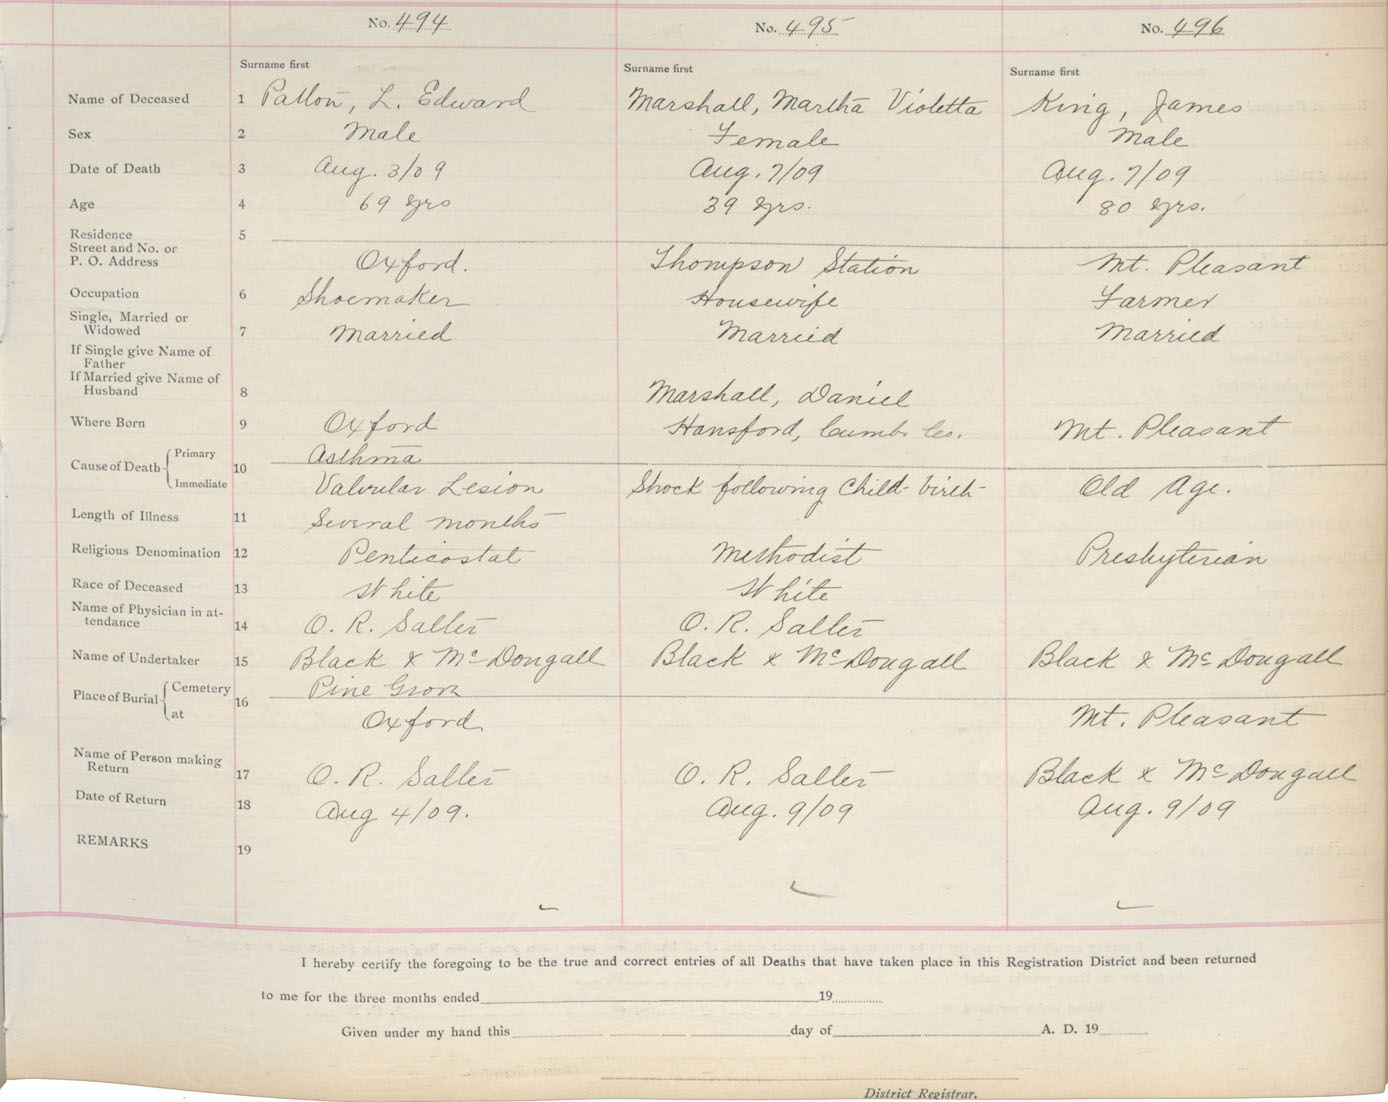 No. 494 No. 495 No. 496
Surname first Surname first Surname first
Name of Deceased 1 Patton, L. Edward Marshall, Martha Violetta King, James
Sex 2 Male Female Male
Date of Death 3 Aug. 3/09 Aug. 7/09 Aug. 7/09
Age 4 69 yrs 39 yrs. 80 yrs.
Residence 5
Street and No. or
P. O. Address Oxford. Thompson Station Mt. Pleasant
Occupation 6 Shoemaker Housewife Farmer
Single, Married or
Widowed 7 Married Married Married
If Single give Name of
Father
If Married give Name of
Husband 8 Marshall, Daniel
Where Born 9 Oxford Hansford, Cumb. Co. Mt. Pleasant
Cause of Death Primary 10 Asthma
Immediate Valvular Lesion Shock following Child-birth- Old Age.
Length of Illness 11 Several months
Religious Denomination 12 Penticostal Methodist Presbyterian
Race of Deceased 13 White White
Name of Physician in at-
tendance 14 O. R. Salter O. R. Salter
Name of Undertaker 15 Black & McDougall Black & McDougall Black & McDougall
Place of Burial Cemetery 16 Pine Grove
at Oxford Mt. Pleasant
Name of Person making
Return 17 O. R. Salter O. R. Salter Black & McDougall
Date of Return 18 Aug 4/09. Aug. 9/09 Aug. 9/09
REMARKS 19
I hereby certify the foregoing to be the true and correct entries of all Deaths that have taken place in this Registration District and been returned
to me for the three months ended 19
Given under my hand this day of A. D. 19
District Registrar.